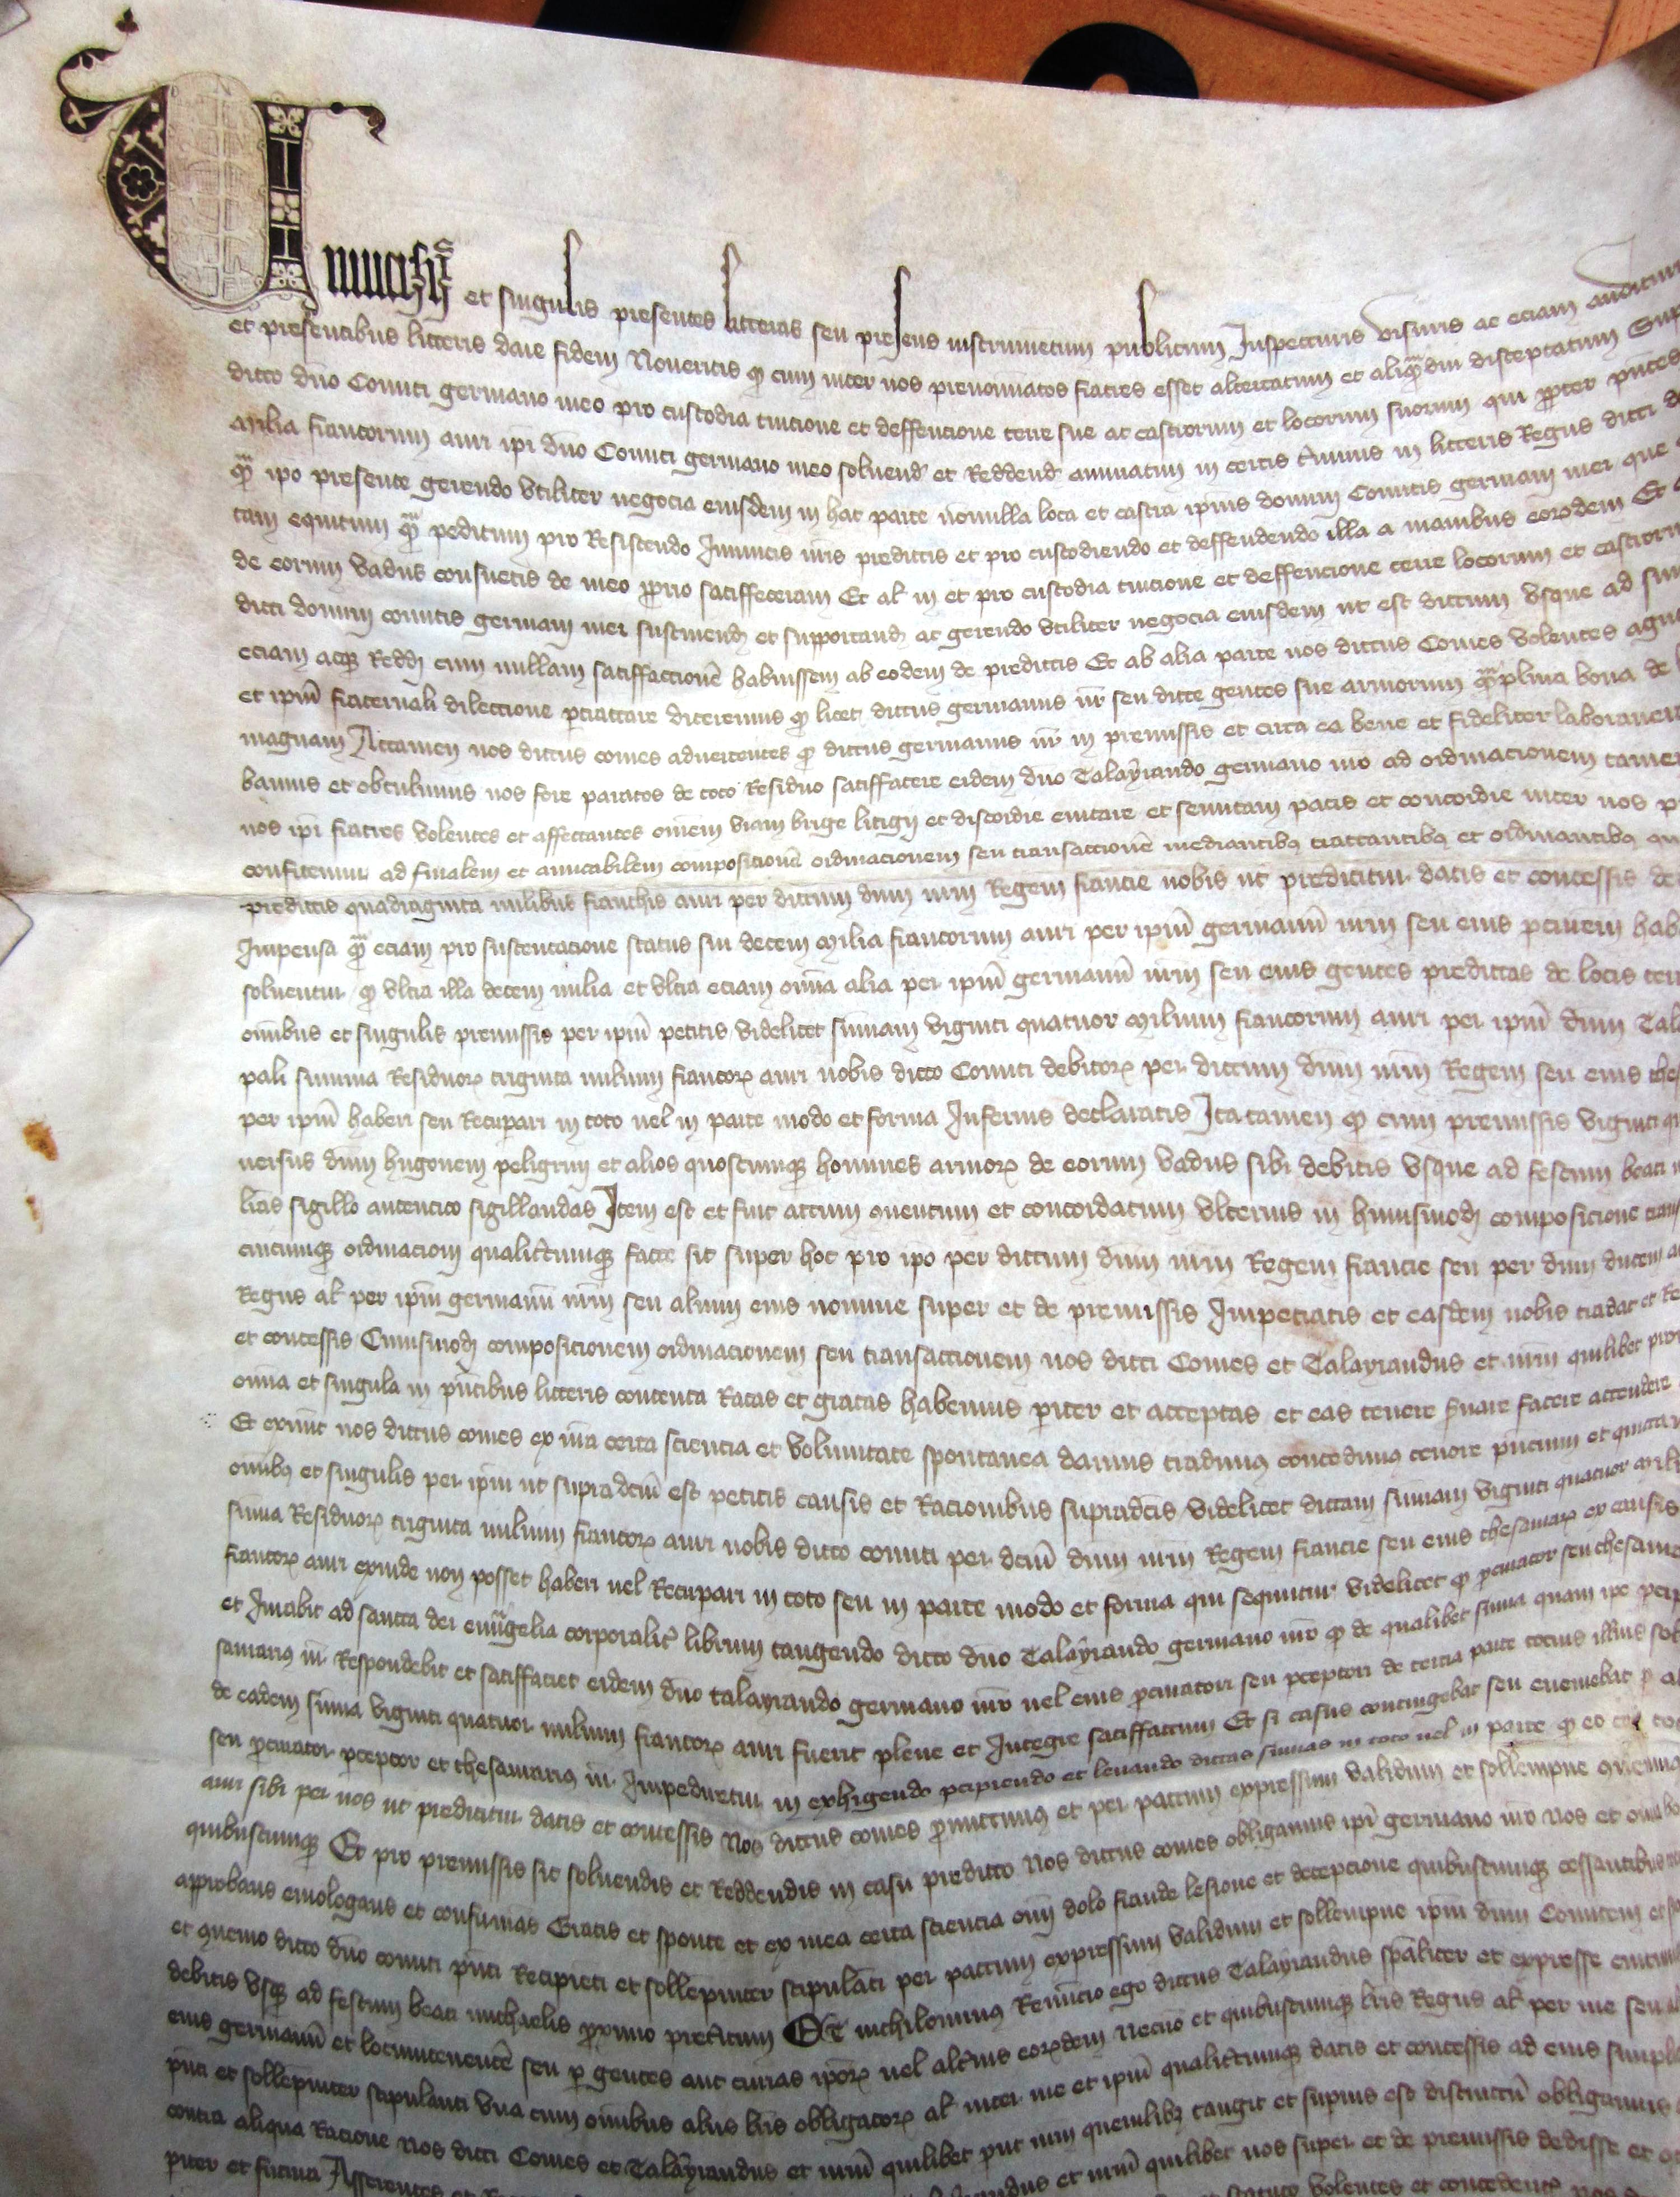 Univ̅sis et singulis presentes litteras seu presens instrumetum publicum Inspecturis visuris ac eciam audituris
et presentibus litteris dare fidem Noveritis q̅ cum inter nos prenominatos fratres esset altercatum et aliq̅diu disceptatum Sup
dicto dn̅o Comiti germano meo pro custodia tuicione et deffencione terre sue ac castrorum et locorum suorum qui pp̅ter pn̅tes
Milia francorum auri ip̅i dn̅o Comiti germano meo solvend̅ et Reddend̅ annuatim in certis t̅minis in litteris Regiis dicti
q̅ ipo presente gerendo utiliter negocia eiusdem in hac parte nonnulla loca et castra ip̅ius domini Comitis germani mei que
tam equitum q̅ peditum pro Resistendo Inimicis nr̅is predictis et pro custodiendo et deffendendo illa a manibus eorūdem Et
de eorum vadiis consuetis de meo p̅prio satiffeceram Et al̅ in et pro custodia tuicione et deffencione terre locorum et castrorum
dicti domini comitis germani mei sustinend̅ et supportand̅ ac gerendo utiliter negocia eiusdem ut est dictum usque ad sum
eciam atq̅ Redd̅ cum nullam satiffaccione̅ habuissem ab eodem de predictis Et ab alia parte nos dictus Comes volentes
et ip̅um fraternali dileccione p̅tractare diceremus q̅ licet dictus germanus nr̅ seu dicte gentes sue armorum q̅plura bona de
magnam Attamen nos dictus comes advertentes q̅ dictus germanus nr̅ in premissis et circa ea bene et fideliter laboraverat
bamus et obtulimus nos fore paratos de toto Residuo satiffacere eidem dn̅o Talayrando germano nr̅o ad ordinacionem tamen
nos ip̅i fratres volentes et affectantes om̅em viam brige litigii et discordie evitare et semitam pacis et concordie inter nos
confitemur ad finalem et amicabilem composicione̅ ordinacionem seu transaccione̅ mediantibꝰ tractantibꝰ et ordinantibꝰ
predictis quadraginta milibus franchis auri per dictum dn̅m nr̅m Regem francie nobis ut predicitur datis et concessis de
Impensa q̅ eciam pro sustentacione status sui decem Milia francorum auri per ip̅m germanu̅ nr̅m seu eius p̅curem hab
solventur q̅ ultra illa decem milia et ultra eciam om̅ia alia per ip̅m germanu̅ nr̅m seu eius gentes predictas de locis
om̅ibus et singulis premissis per ip̅m petitis videlicet sum̅am viginti quatuor Milium francorum auri per ip̅m dn̅m Tal
pali summa Residuoꝝ triginta milium francoꝝ auri nobis dicto Comiti debitoꝝ per dictum dn̅m nr̅m Regem seu eius thes
per ip̅m haberi seu Recuperari in toto vel in parte modo et forma Inferius declaratis Ita tamen q̅ cum premissis viginti
versus dn̅m hugonem peligrini et alios quoscumq̅ homines armoꝝ de eorum vadiis sibi debitis usque ad festum beati
lr̅as sigillo autentico sigillandas Item est et fuit actum conventum et concordatum ulterius in huiusmodi composicione
cuicumq̅ ordinacioni qualit̅cumq̅ facte sit super hoc pro ipo per dictum dn̅m nr̅m Regem francie seu per dn̅m ducem
Regiis al̅ per ip̅m germanu̅ nr̅m seu alium eius nomine super et de premissis Impetratis et easdem nobis tradat et
et concessis Cuiusmodi composicionem ordinacionem seu transaccionem nos dicti Comes et Talayrandus et nr̅m quilibet
om̅ia et singula in pn̅tibus litteris contenta Ratas et gratas habemus p̅riter et acceptas et eas tenere s̅vare facere attendere
Et exnunc nos dictus comes ex nr̅a certa sciencia et voluntate spontanea damus tradimꝰ concedimꝰ tenore pn̅cium et quictam
om̅ibꝰ et singulis per ip̅m ut supradcm̅ est petitis causis et Racionibus supradc̅is videlicet dictam sum̅am viginti quatuor
sum̅a Residuoꝝ triginta milium francoꝝ auri nobis dicto comiti per dcu̅m dn̅m nr̅m Regem francie seu eius thesaurar̅ ex causis
francoꝝ auri exinde non posset haberi vel Recuperari in toto seu in parte modo et forma qui sequitur videlicet q̅ p̅curator seu thesaurar
et Jurabit ad sancta dei euu̅gelia corporalit̅ librum tangendo dicto dn̅o Talayrando germano nr̅o q̅ de qualibet sum̅a quam ipe
saurariꝰ nr̅ Respondebit et satiffaciet eidem dn̅o talayrando germano nr̅o vel eius p̅curatori seu p̅ceptori de tercia parte tocius illius
de eadem sum̅a viginti quatuor milium francoꝝ auri fuerit plene et Integre satiffactum Et si casus contingebat seu eveniebat
seu p̅curator p̅ceptor et thesaurariꝰ nr̅ Impediretur in exhigendo p̅cipiendo et levando dictas sum̅as in toto vel in parte q̅ eo
auri sibi per nos ut predicitur datis et concessis Nos dictus comes p̅mittimꝰ et per pactum expressum validum et sollempne
quibuscumq̅ Et pro premissis sic solvendis et Reddendis in casu predicto Nos dictus comes obligamus ip̅i germano nr̅o nos et
approbans emologans et confirmans Gratis et sponte et ex mea certa sciencia om̅i dolo fraude lesione et decepcione quibuscumq̅ cessantibus
et quemo dicto dn̅o comiti pn̅ti Recipieti et sollepniter stipulati per pactum expressum validum et sollempne ip̅m dn̅m Comitem
debitis usq̅ ad festum beati michaelis p̅ximo preteritum Et nichilominꝰ Renu̅cio ego dictus Talayrandus sp̅aliter et expresse
eius germanu̅ et locumtenente̅ seu p̅ gentes aut curias ip̅oꝝ vel alt̅ius eoꝝdem necno̅ et quibuscumq̅ lr̅is Regiis al̅ per me seu
pn̅ti et sollepniter stipulanti una cum om̅ibus aliis lr̅is obligatoꝝ al̅ inter me et ip̅m qualit̅cumq̅ datis et concessis ad eius
contra aliqua Racione Nos dicti Comes et Talayrandus et nr̅m quilibet put nr̅m quemlibꝫ tangit et supius est distinctu̅ obligamus
p̅riter et futura Asserentes et nr̅m quilibet nos super et de premissis dedisse et
volentes et concedentes nos